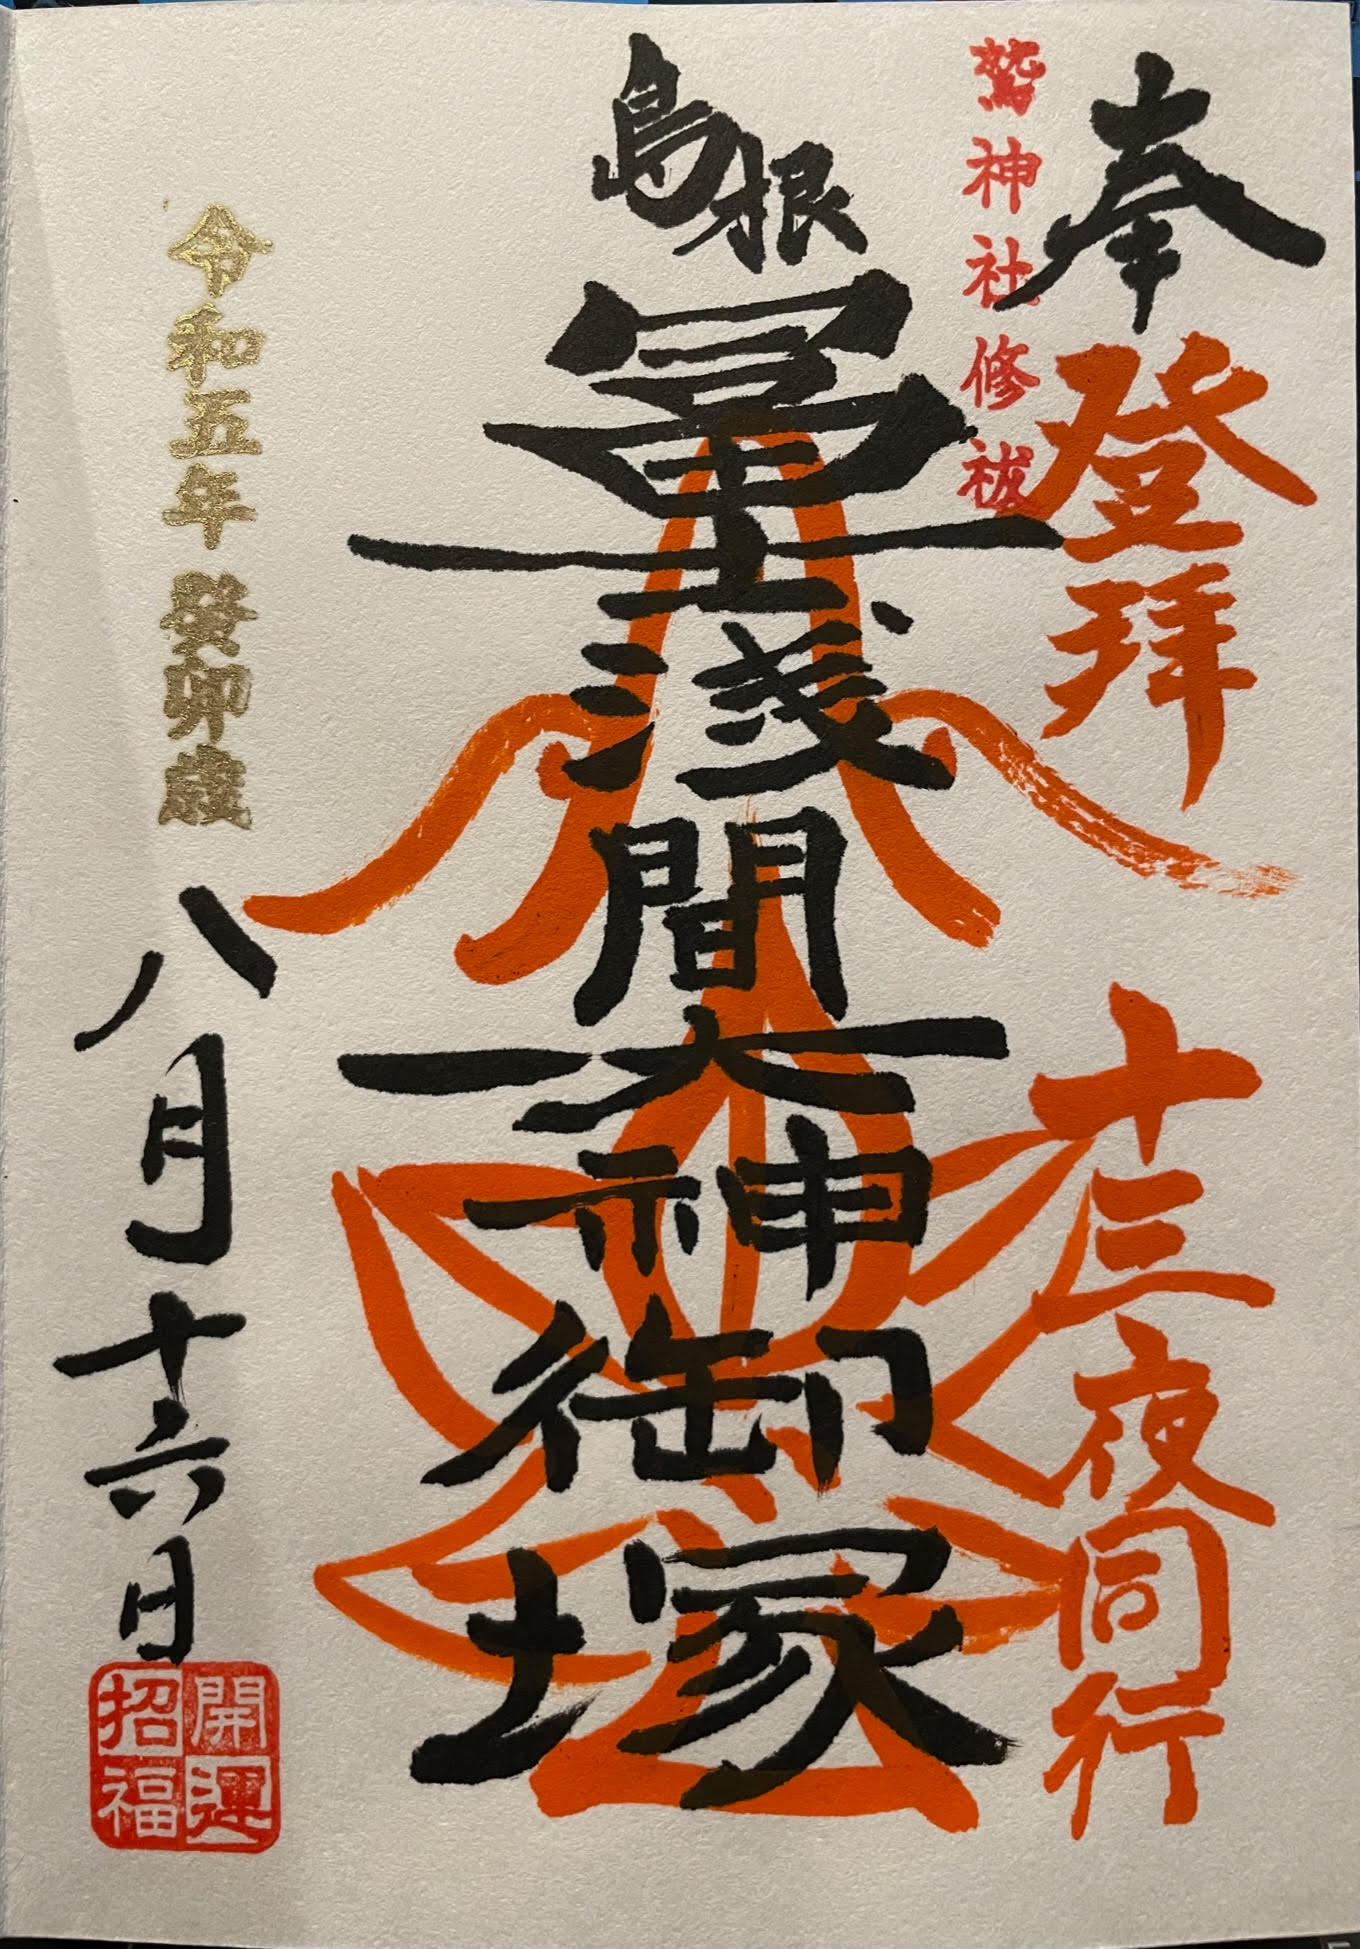 奉登拝 十三夜同行
鷲神社修祓
島根
冨士浅間大神御塚
令和五年 癸卯歳 八月十六日
開運
招福